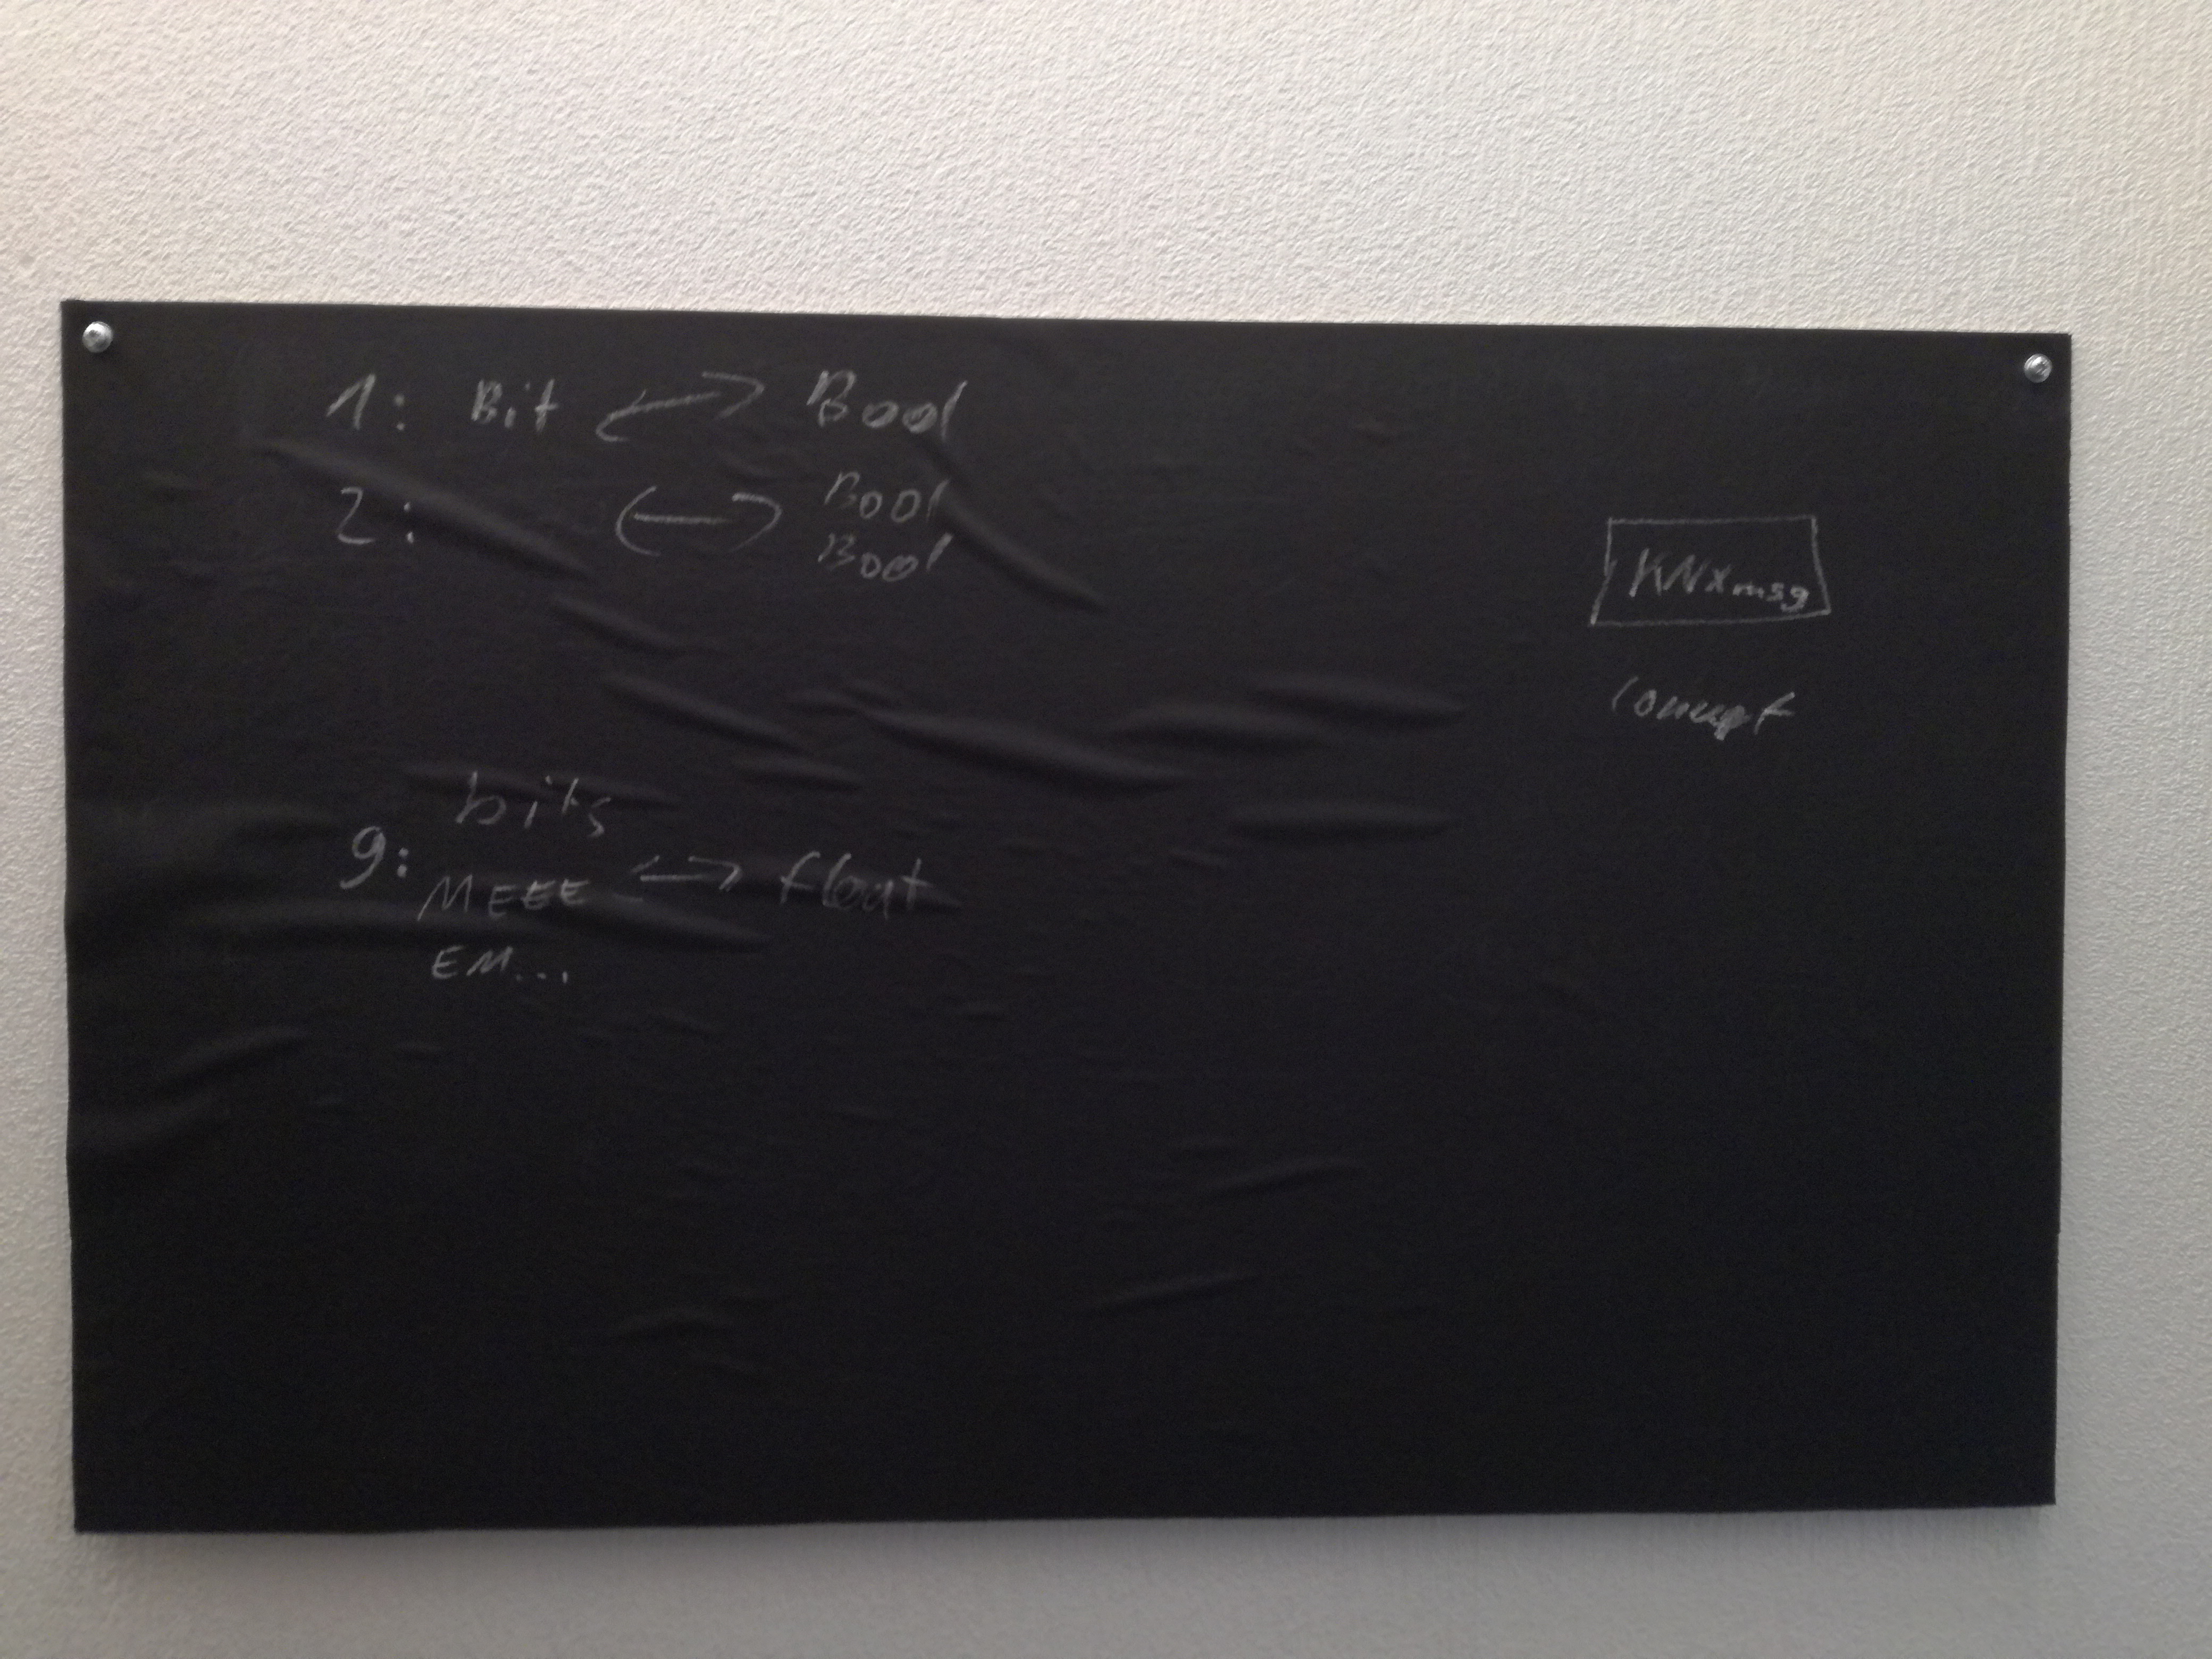 1: Bit <-> Bool
2: <-> Bool
Bool
KNXmsg
concept
bits
9: MEEE <-> float
EM...